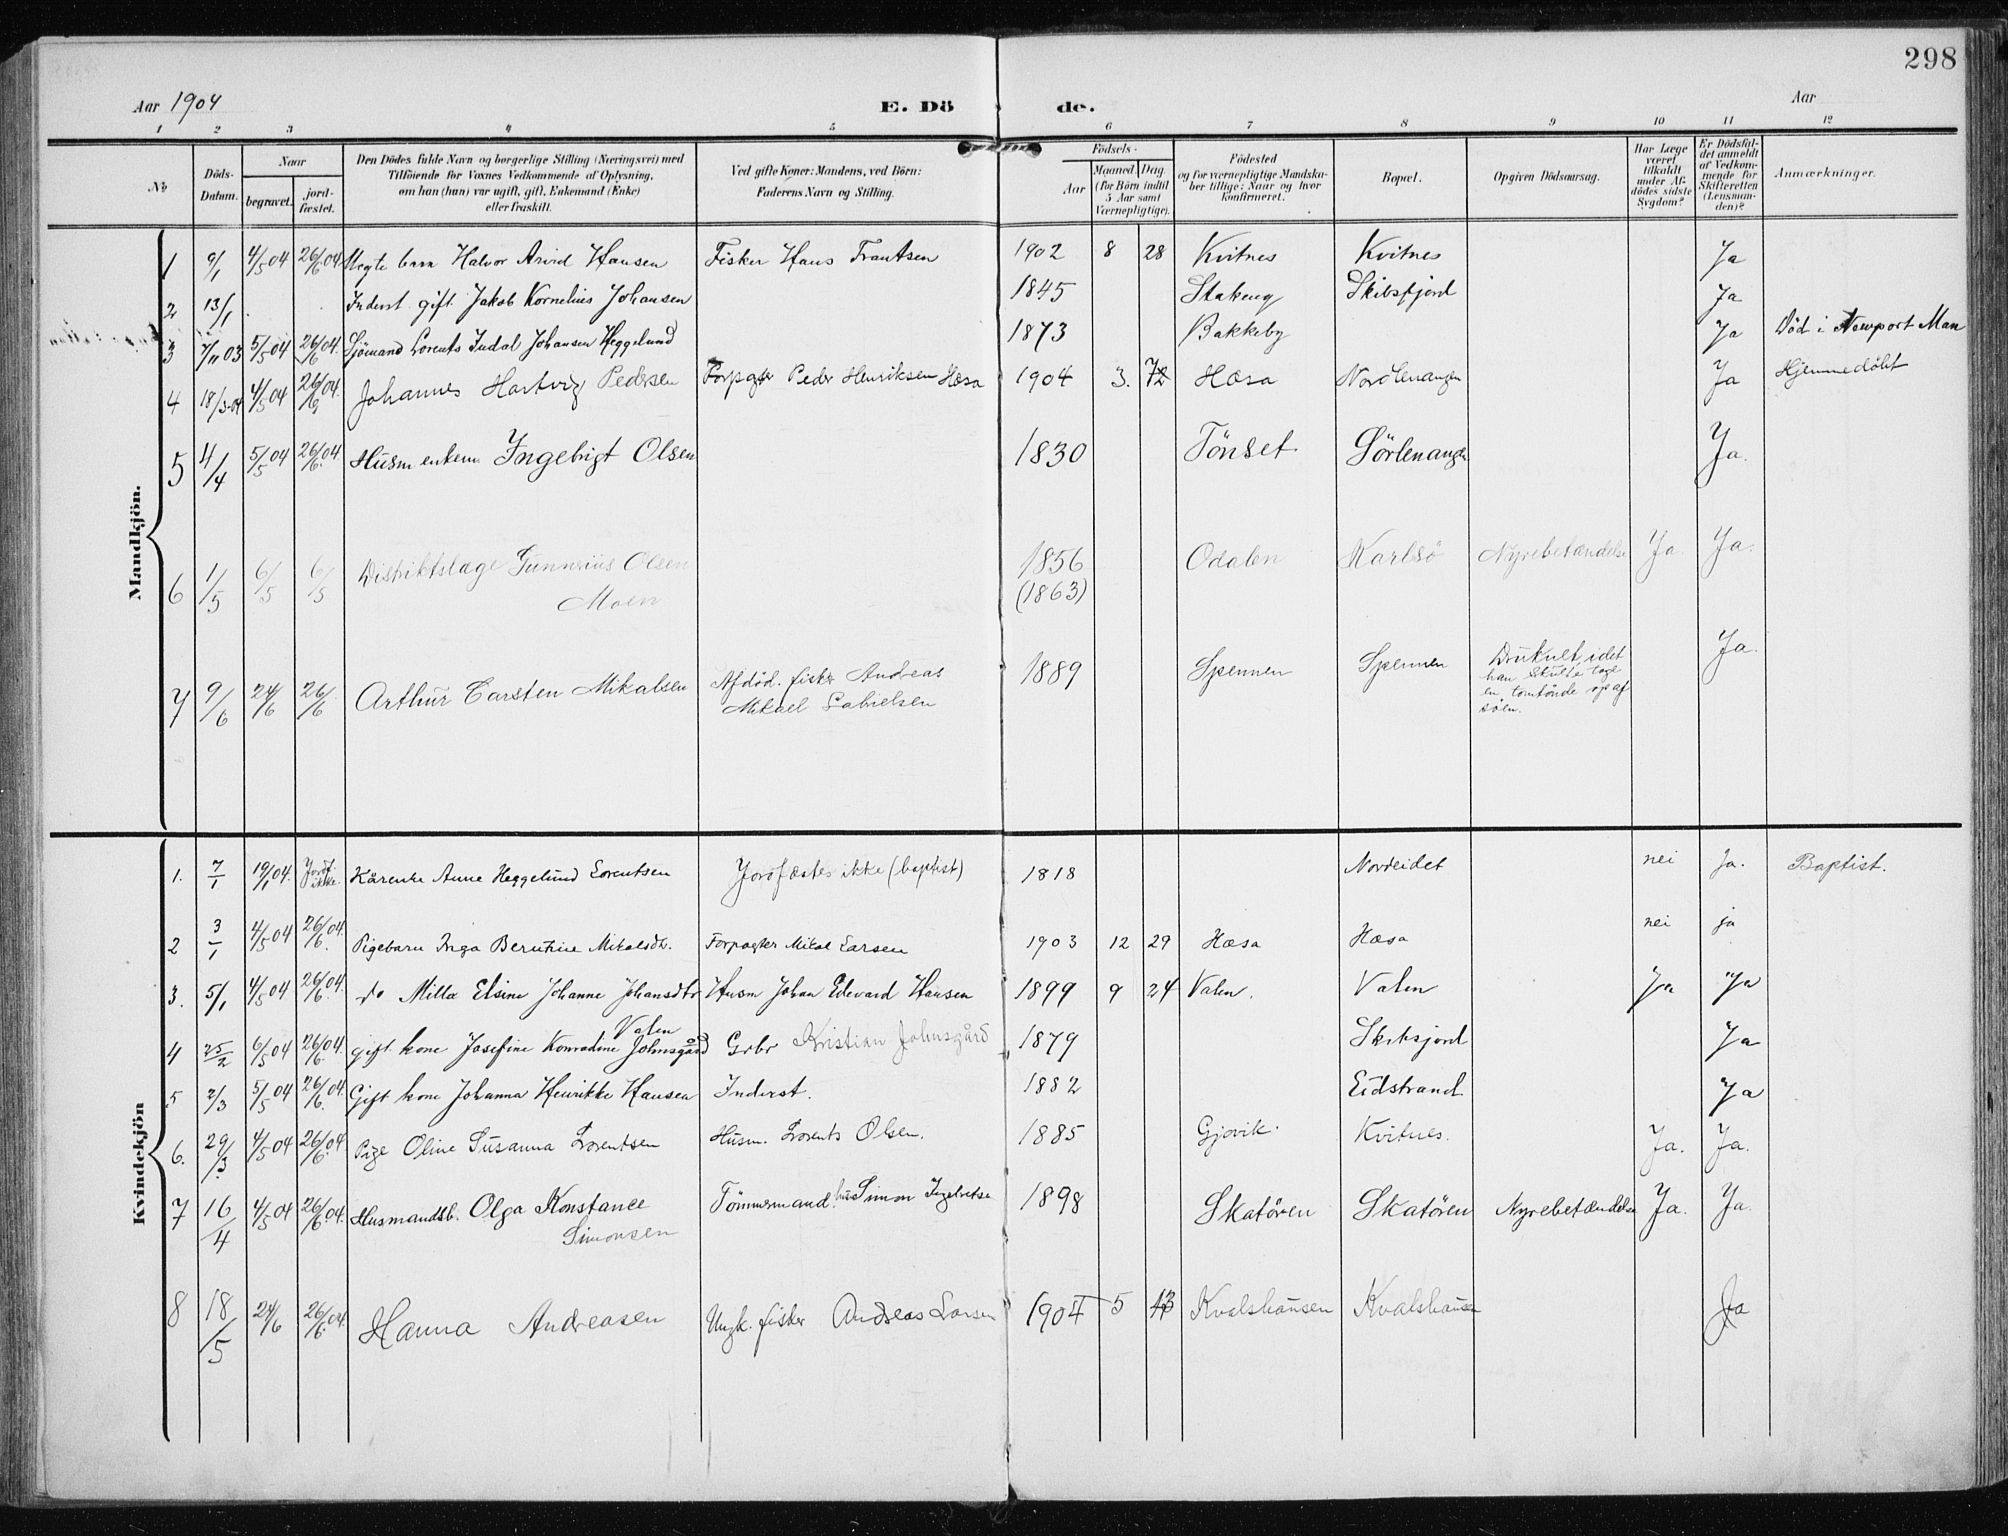 298
Aar 1904 E. Dö de. Aar
1 2 3 4 5 6 7 8 9 10 11 12
No
Döds-Datum.
Naar
begravet.
jord-fæstet.
Den Dödes fulde Navn og borgerlige Stilling (Næringsvei) med
Tilföiende for Voxnes Vedkommende af Oplysning,
om han (hun) var ugift, gift, Enkemand (Enke)
eller fraskilt.
Ved gifte Koner: Mandens, ved Börn:
Faderens Navn og Stilling.
Födsels-
Aar
Maaned. Dag
(for Börn indtil
5 Aar samt
Værnepligtige).
Födested
og for værnepligtige Mandska-
ber tillige: Naar og hvor
konfirmeret.
Bopæl.
Opgiven Dödsaarsag.
Har Læge
været
tilkaldt
under Af-
dödes sidste
Sygdom?
Er Dödsfal-
det anmeldt
af Vedkom-
mende for
Skifteretten
(Lensman-
den)?
Anmærkninger.
Mandkjön.
1 9/1 4/5 04 26/6 04. Uegte barn Halvor Arvid Hansen Fisker Hans Frantsen 1902 8 28 Kvitnes Kvitnes Ja
2 13/1 Inderst gift. Jakob Kornelius Johansen 1845 Stakeng Skibsfjord Ja
3 7/11 03 5/5 04 26/6 04. Sjömand Lorents Indal Johansen Heggelund 1873 Bakkeby Ja Död i Newport Man
4 18/3-04 4/5 04 26/6 04. Johannes Hartvig Pedersen Forpagter Peder Henriksen Hæsa 1904 3. Hæsa Nordlenangen Ja Hjemmedöbt
5 4/4 5/5 04 26/6 04. Husm enkem Ingebrigt Olsen 1830 Tönset Sörlenangen Ja.
6 1/5 6/5 6/5 Distriktslæge Gunnerius Olsen 1856 Odalen Karlsö Nyrebetændelse Ja. Ja.
Moen (1863)
7 9/6 24/6 26/6 Arthur Carsten Mikalsen Afdöd. fisker Andreas 1889 Spennen Spennen Druknet, idet Ja.
Mikael Gabrielsen han skulde tage
en tomtönde op af
söen.
Kvindekjön
1. 7/1 19/1 04. Jordf. ikke. Kärenke Anne Heggelund Lorentsen Jordfæstes ikke (baptist) 1818 Nordeidet nei Ja. Baptist.
2 3/1 4/5 04 26/6 04. Pigebarn Inga Berntine Mikalsdtr. Forpagter Mikal Larsen 1903 12 29 Hæsa Hæsa nei ja
3. 5/1 4/5 04 26/6 04. do Milla Elsine Johanne Johansdtr Husm Johan Edevard Hansen 1899 9 24 Valen. Valen Ja Ja
Valen
4 25/2 6/5 04 26/6 04. gift kone Josefine Konradine Johnsgård Grbr Kristian Johnsgård 1879 Skibsfjord Ja
5 2/3 5/5 04 26/6 04. Gift kone Johanna Henrikke Hansen Inderst. 1882 Eidstrand Ja
6. 29/3 4/5 04 26/6 04. Pige Oline Susanna Lorentsen Husm. Lorents Olsen. 1885 Gjovik. Kvitnes. Ja. Ja.
7 16/4 4/5 04 26/6 04. Husmandsb. Olga Konstance Tömmermand Simon 1898 Skatören Skatören Nyrebetændelse Ja. Ja.
Simonsen
8 18/5 24/6 26/6 04. Hanna Andreasen Ungk. fisker Andreas Larsen 1904 5 Kvalshausen Kvalshausen Ja